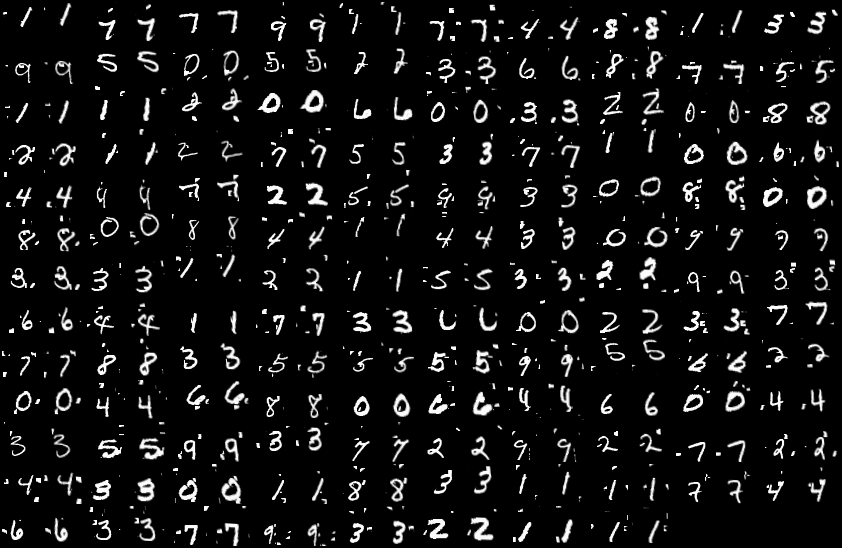 1 1 7 7 7 7 9 9 1 1 7 7 4 4 8 8 1 1 3 3
9 9 5 5 0 0 5 5 2 2 3 3 6 6 8 8 7 7 5 5
1 1 1 1 2 2 0 0 6 6 0 0 3 3 2 2 0 0 8 8
2 2 1 1 2 2 7 7 5 5 3 3 7 7 1 1 0 0 6 6
4 4 9 9 7 7 2 2 5 5 9 9 3 3 0 0 8 8 0 0
8 8 0 0 8 8 4 4 1 1 4 4 3 3 0 0 9 9 7 7
3 3 3 3 1 1 2 2 1 1 5 5 3 3 2 2 9 9 3 3
6 6 4 4 1 1 7 7 3 3 0 0 2 2 3 3 7 7
7 7 8 8 3 3 5 5 5 5 5 5 9 9 5 5 6 6 2 2
0 0 4 4 6 6 8 8 0 0 6 6 4 4 6 6 0 0 4 4
3 3 5 5 9 9 3 3 7 7 2 2 9 9 2 2 7 7 2 2
4 4 3 3 0 0 1 1 8 8 3 3 1 1 1 1 7 7 4 4
6 6 3 3 7 7 9 9 3 3 2 2 1 1 1 1